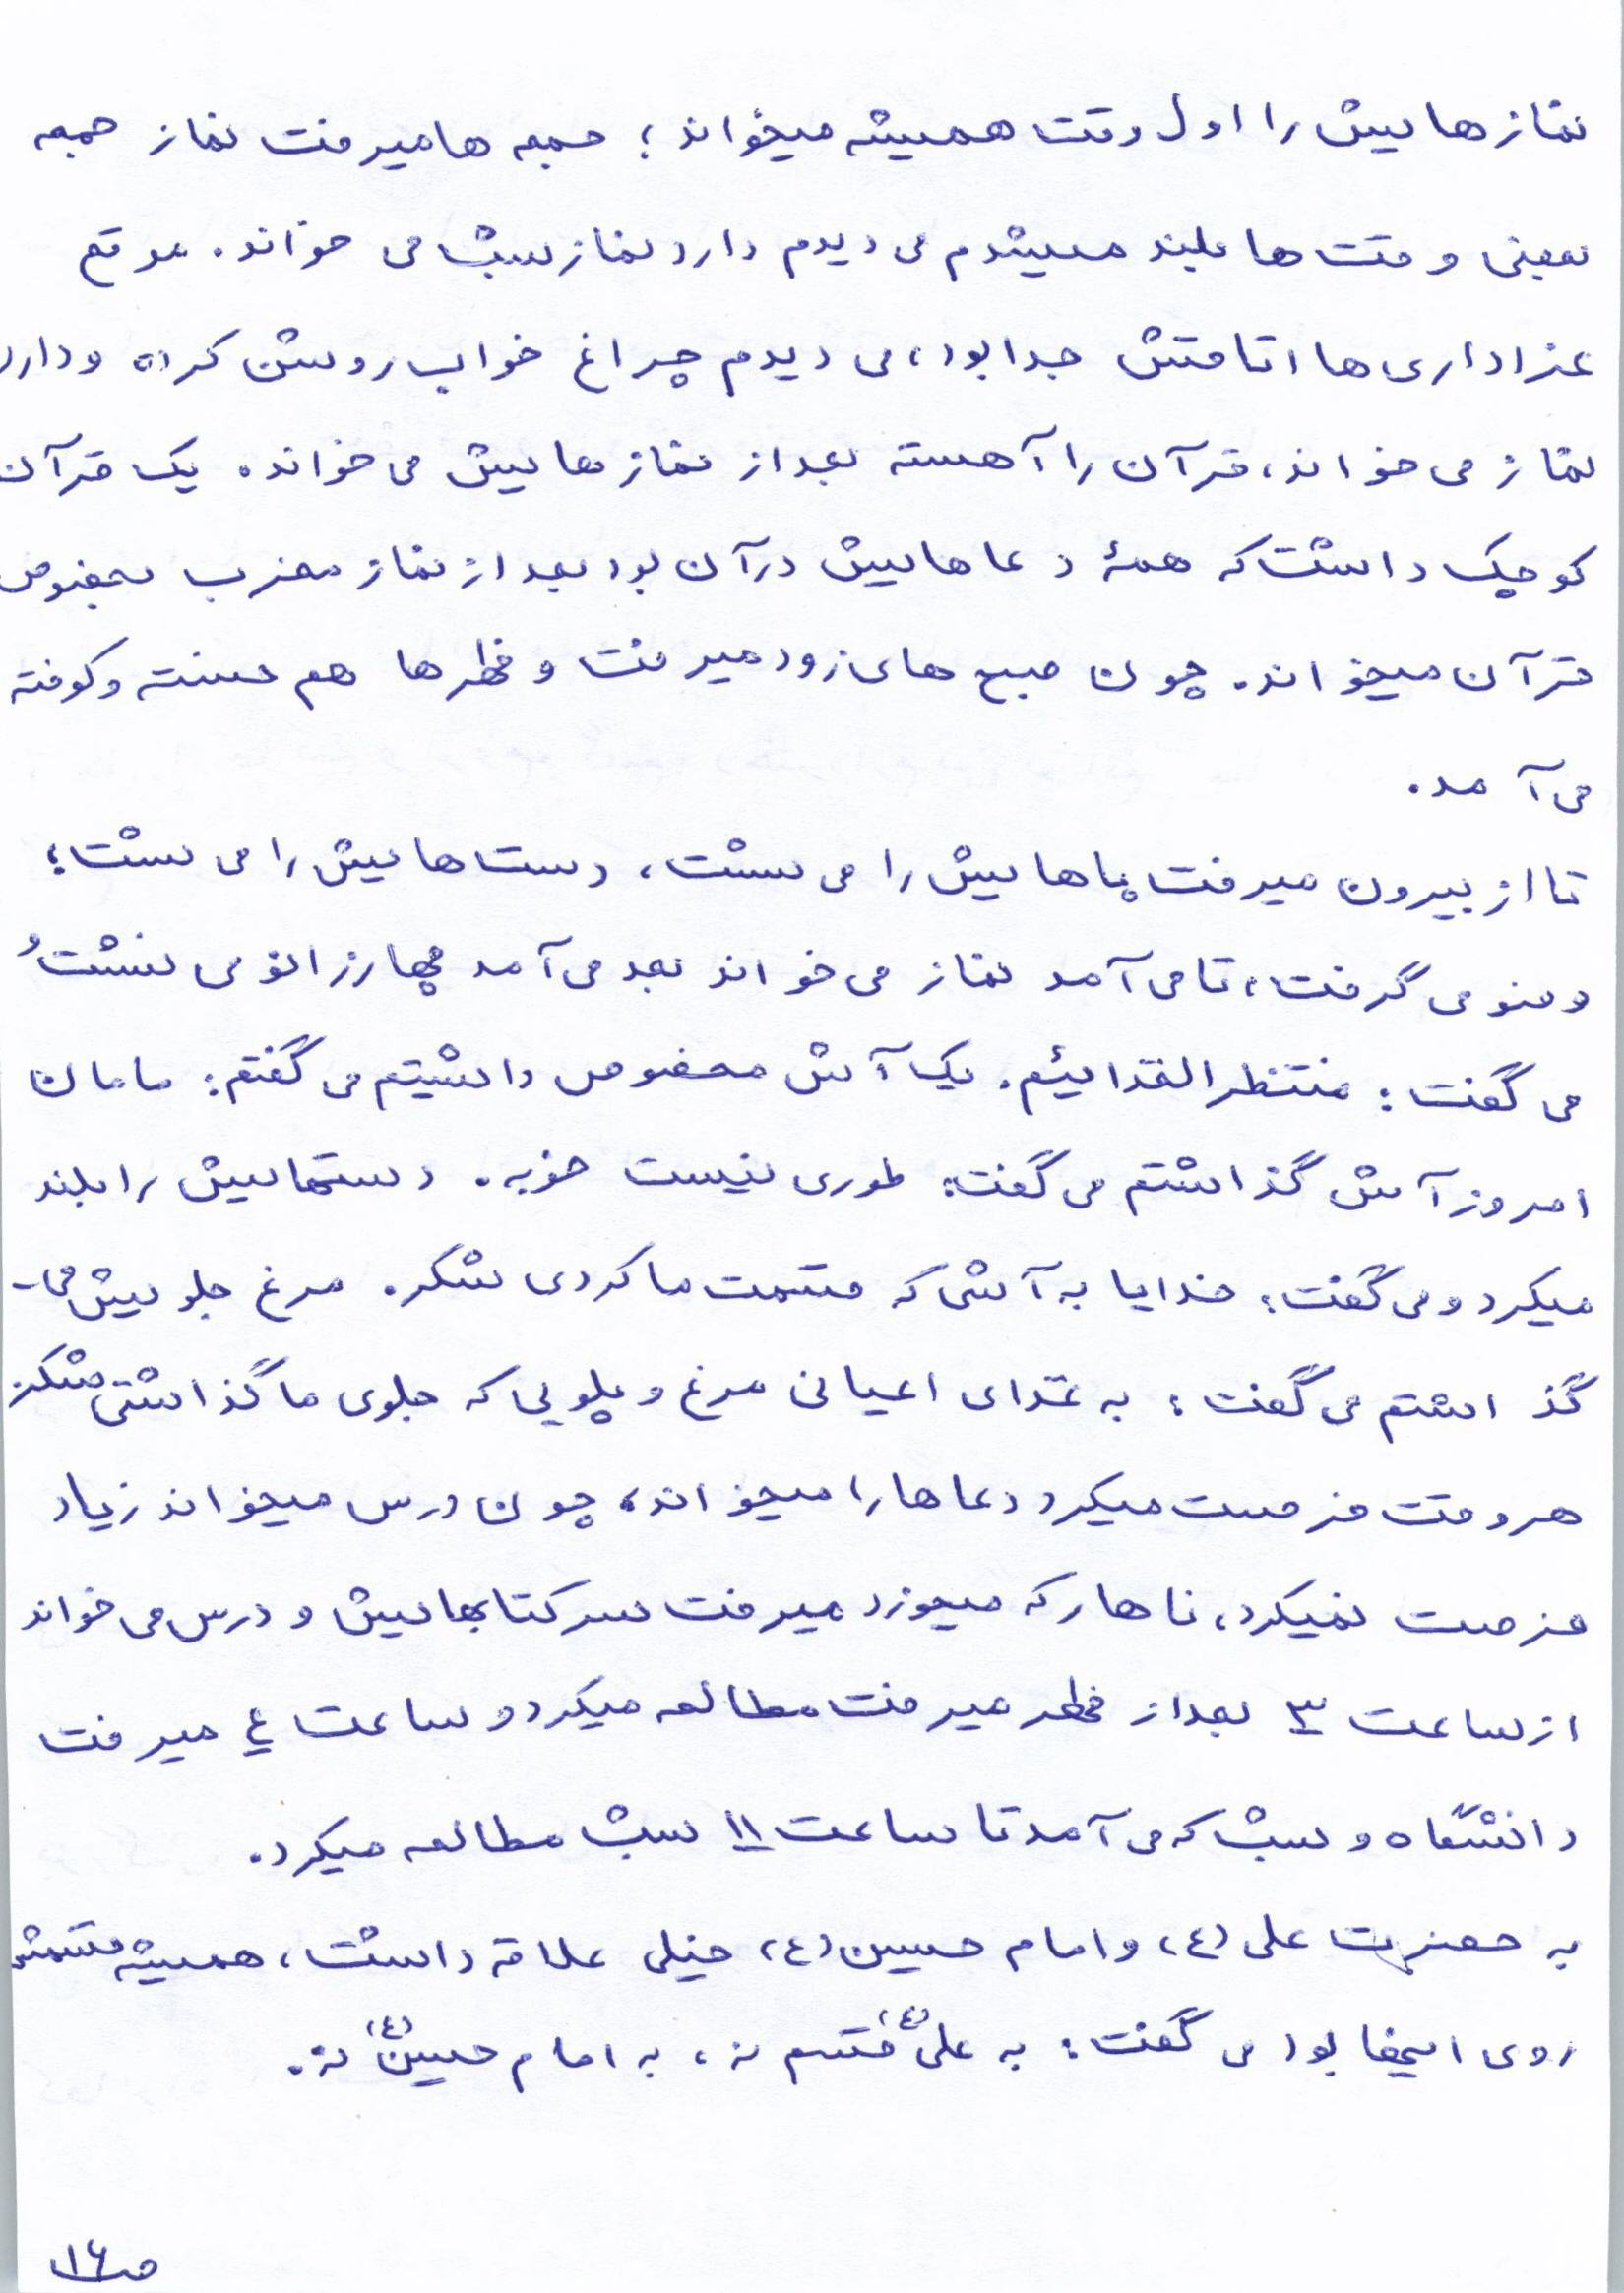 نمازهایش را اول وقت همیشه میخواند؛ جمعه ها میرفت نماز جمعه
بعضی وقت ها بلند میشدم می دیدم دارد نماز شب می خواند. موقع
عزاداری ها اتاقش جدا بود، می دیدم چراغ خواب روشن کرده و دارد
نماز می خواند، قرآن را آهسته بعد از نمازهایش می خواند. یک قرآن
کوچک داشت که همۀ دعاهایش در آن بود بعد از نماز مغرب بخصوص
قرآن میخواند. چون صبح های زود میرفت و ظهرها هم خسته و کوفته
می آمد.
تا از بیرون میرفت پاهایش را می شست، دست هایش را می شست؛
وضو می گرفت، تا می آمد نماز می خواند بعد می آمد چهارزانو می نشست وُ
می گفت: منتظر الغذائیم. یک آش مخصوص داشتیم می گفتم: مامان
امروز آش گذاشتم می گفت: طوری نیست خوبه. دستهایش را بلند
میکرد و می گفت: خدایا به آشی که قسمت ما کردی شکر. مرغ جلویش می-
گذاشتم می گفت: به غذای اعیانی مرغ و پلویی که جلوی ما گذاشتی شکر
هر وقت فرصت میکرد دعاها را میخواند، چون درس میخواند زیاد
فرصت نمیکرد، ناهار که میخورد میرفت سر کتابهایش و درس می خواند
از ساعت ۳ بعد از ظهر میرفت مطالعه میکرد و ساعت ٤ میرفت
دانشگاه و شب که می آمد تا ساعت ۱۱ شب مطالعه میکرد.
به حضرت علی (ع) و امام حسین (ع) خیلی علاقه داشت، همیشه قسمش
روی اینها بود می گفت: به علی (ع) قسم نه، به امام حسین (ع) نه.
ص۱۶